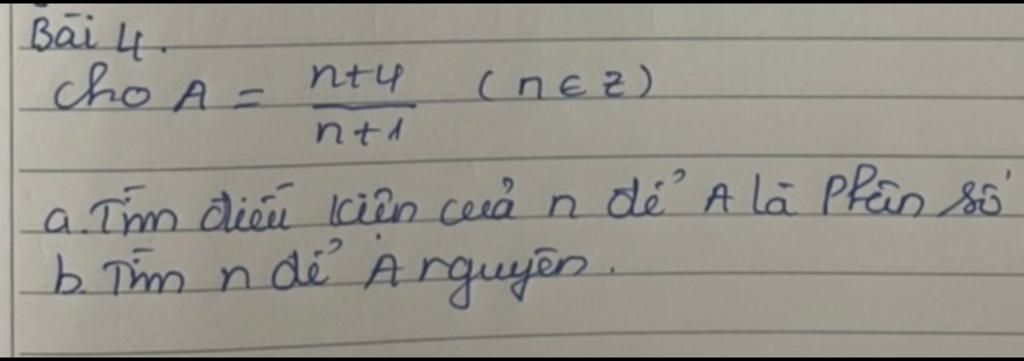 Bài 4.
Cho A = \frac{n+4}{n+1} (n ∈ Z)
a. Tìm điều kiện của n để A là Phân số
b. Tìm n để A nguyên.